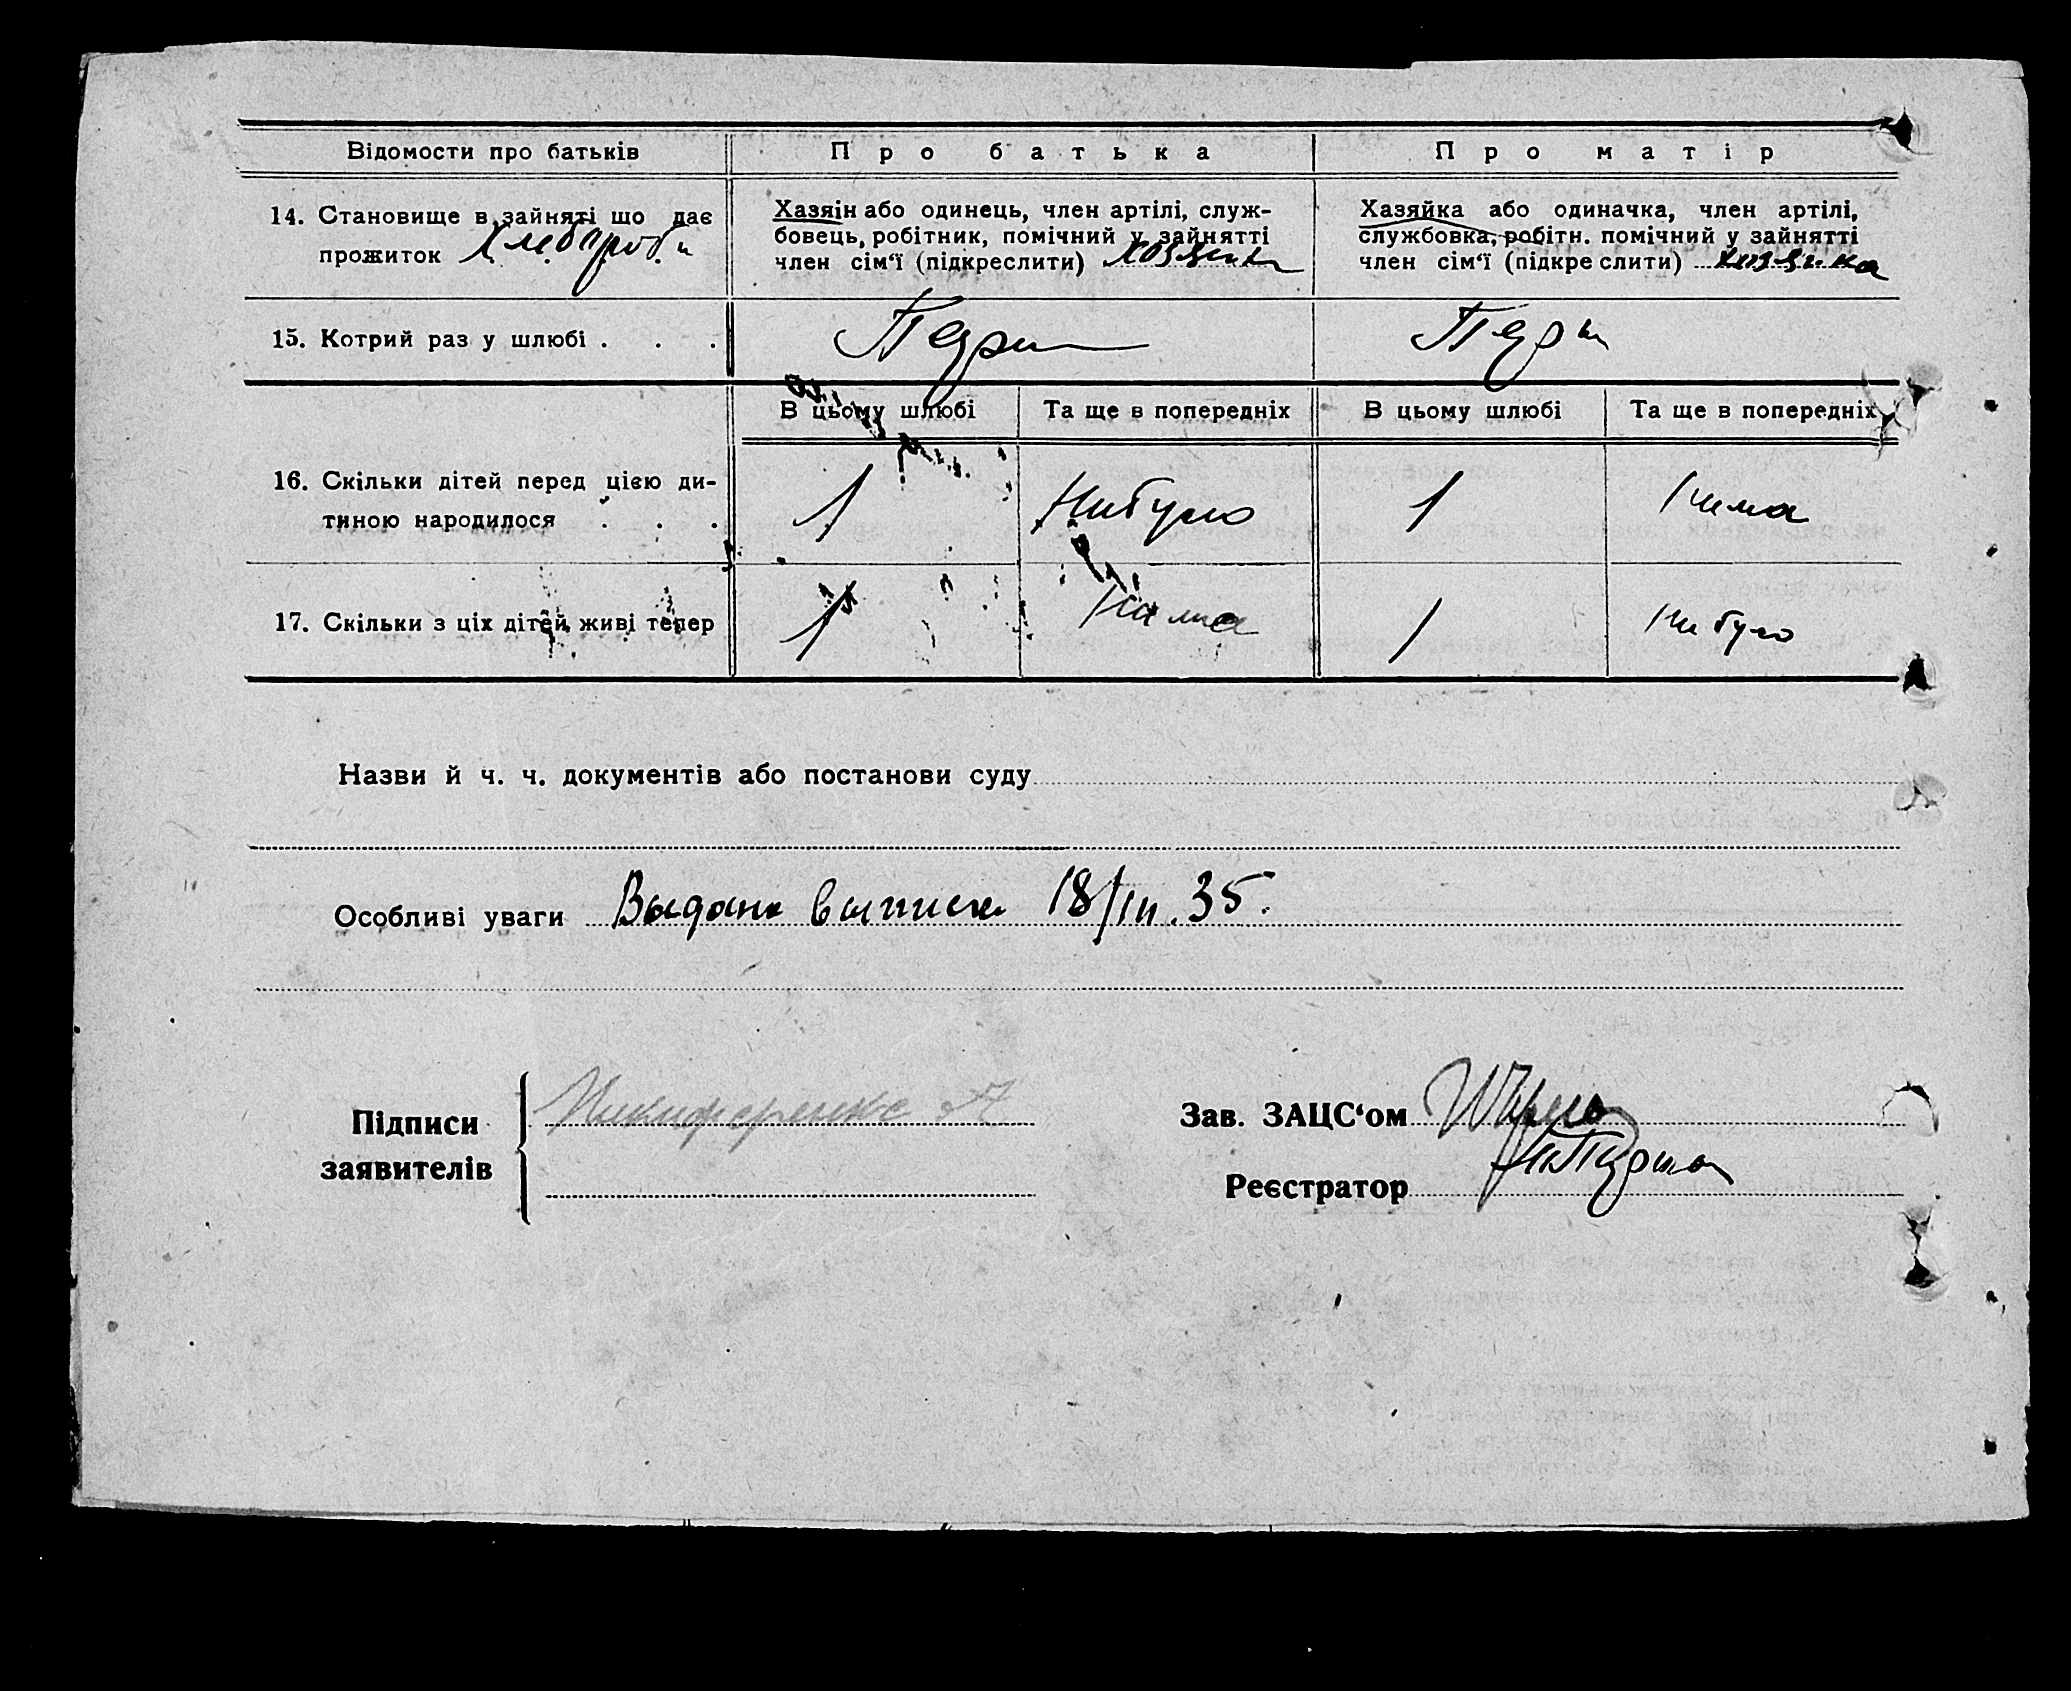 Відомости про батьків Про батька Про матір
14. Становище в зайняті що дає прожиток Хлебароби
Хазяін або одинець, член артілі, служ-
бовець, робітник, помічний у зайнятті
член сім'ї (підкреслити) хозяин
Хазяйка або одиначка, член артілі,
службовка, робітн. помічний у зайнятті
член сім'ї (підкреслити) хозяика
15. Котрий раз у шлюбі . . . Перш Перш
В цьому шлюбі Та ще в попередніх В цьому шлюбі Та ще в попередніх
16. Скільки дітей перед цією ди-
тиною народилося . . . 1 Нибуло 1 Нима
17. Скільки з ціх дітей живі тепер 1 Нима 1 Ни було
Назви й ч. ч. документів або постанови суду
Особливі уваги Выдана выписка 18/III.35.
Підписи
заявителів
Никифоренко
Зав. ЗАЦС‘ом
Реєстратор